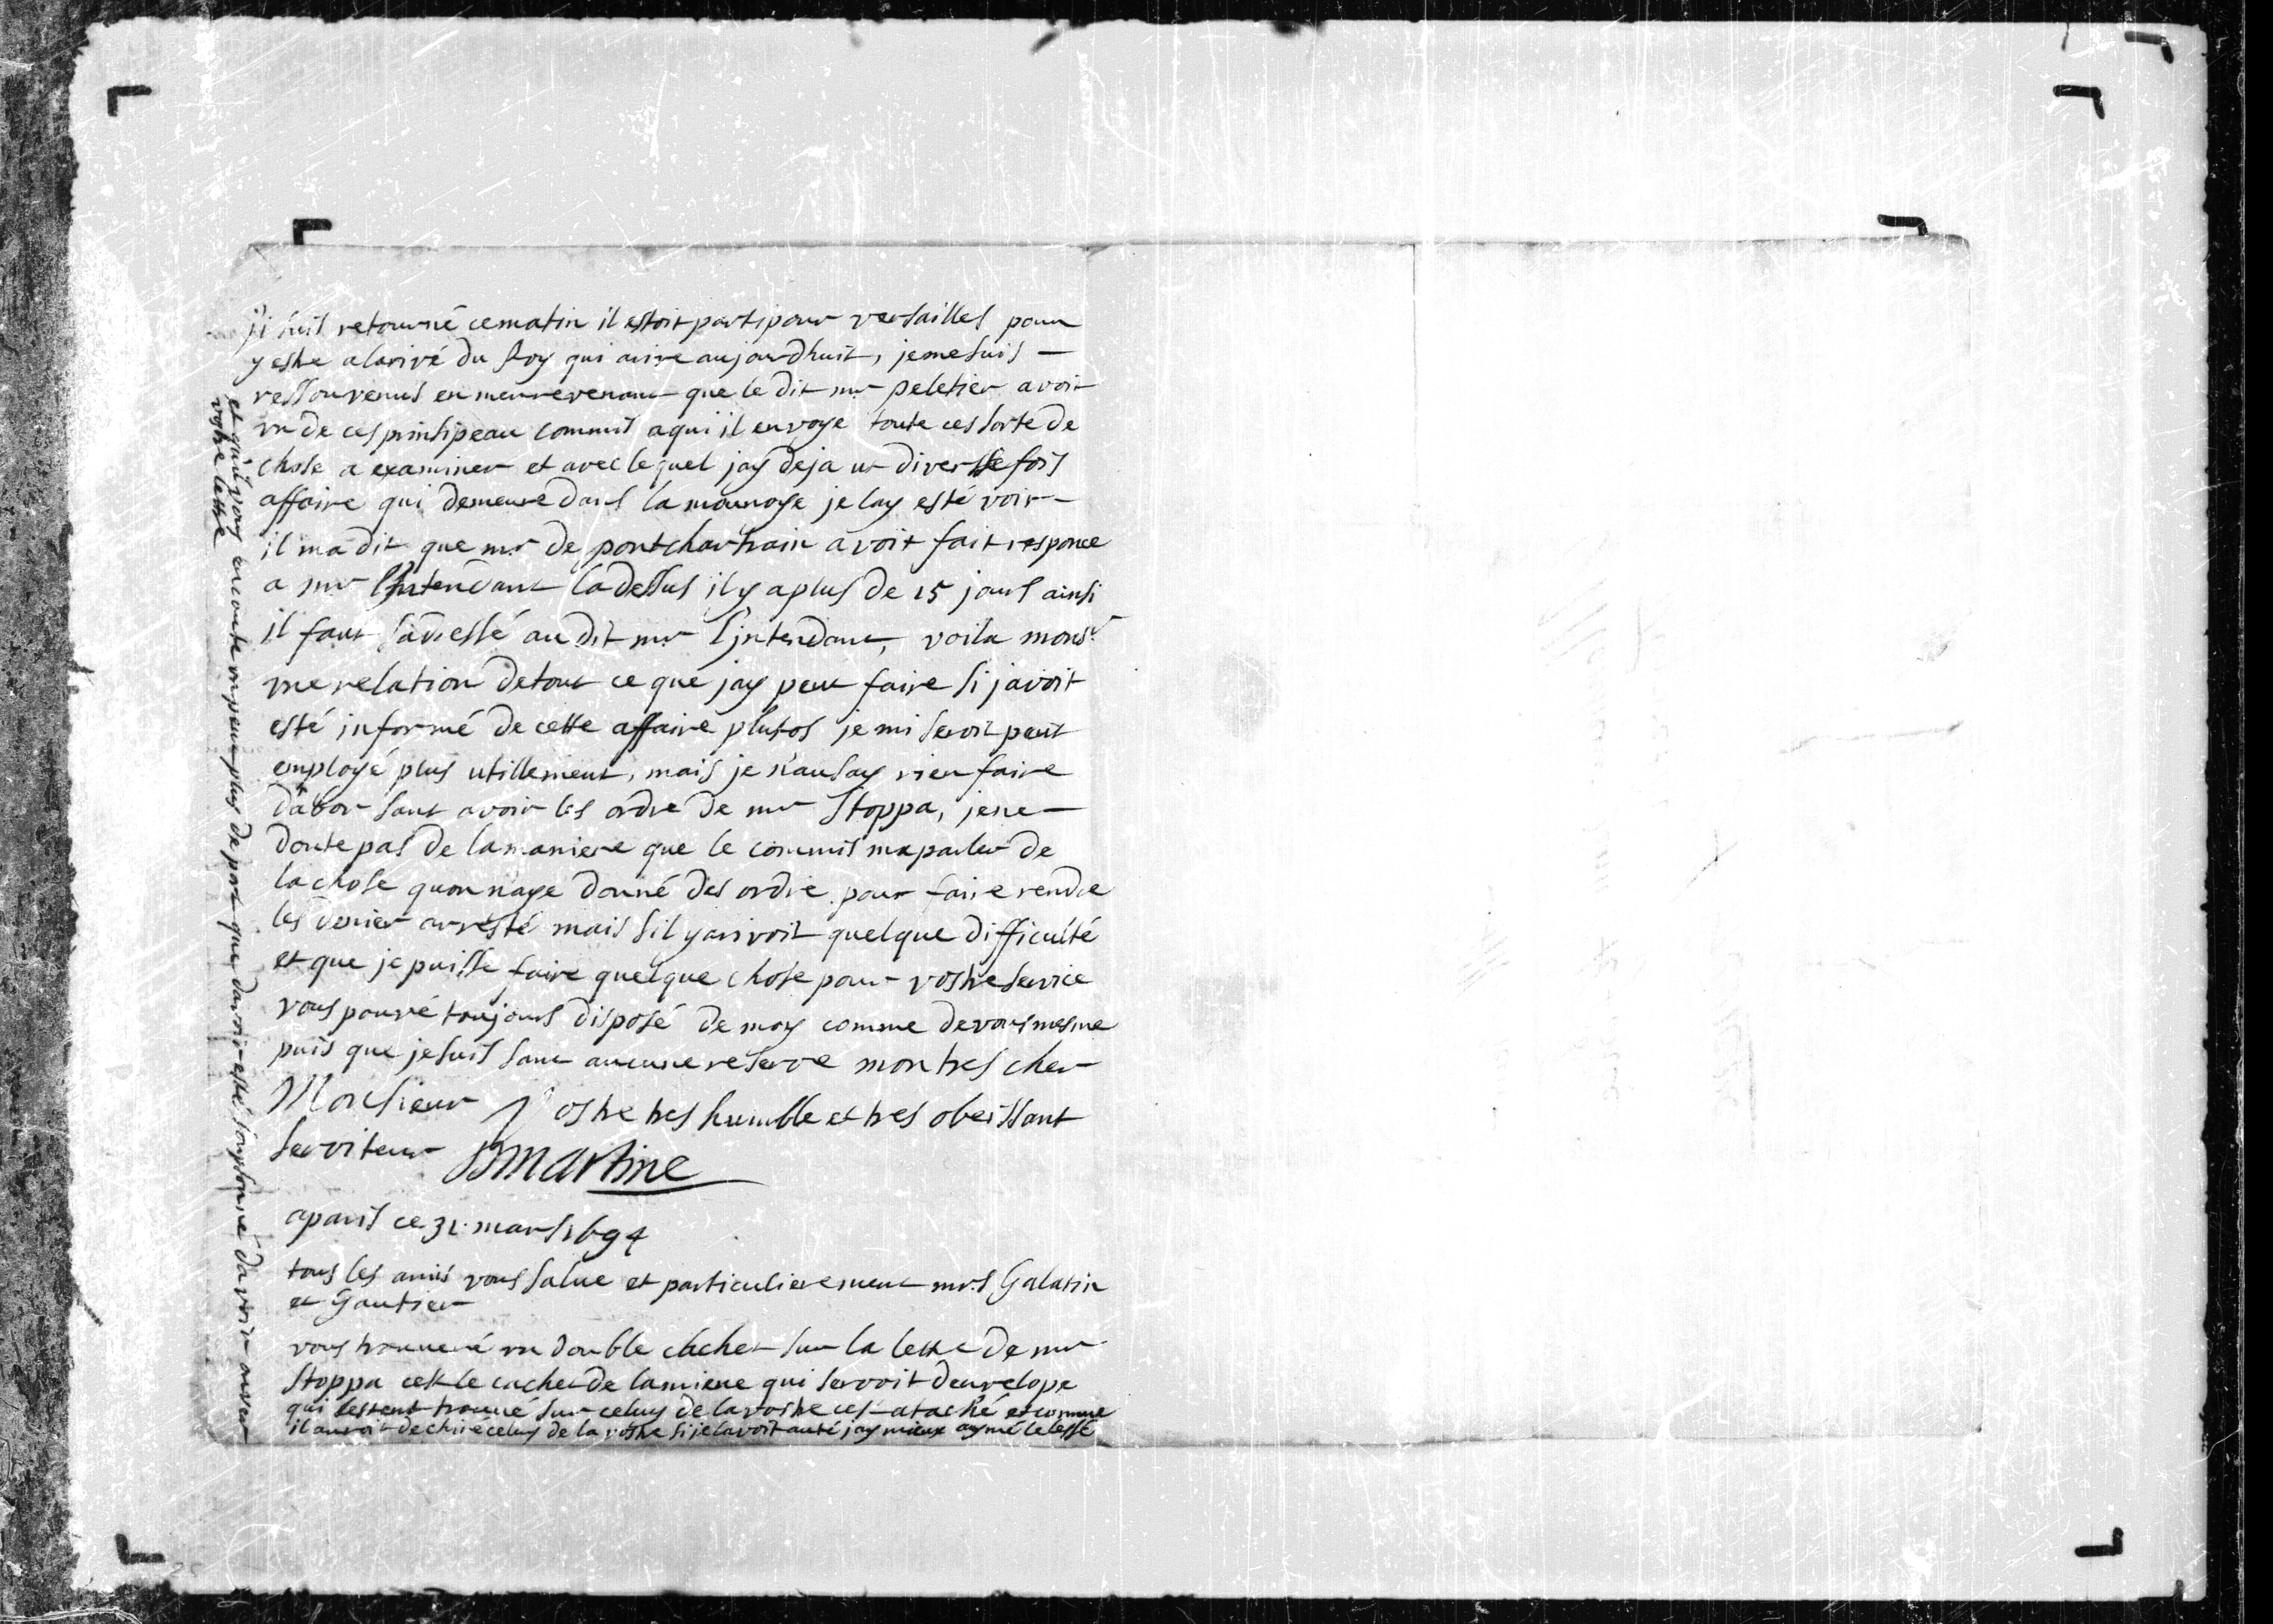 ji suis retourné cematin il estoit parti pour versailles pour
y estre a larivé du Roy qui arive aujourdhuit, jeme suis —
ressouvenus en men revenant que le dit mr peletier avoit
vn de ces prinsipeau commis aqui il envoye toute ces sorte de
chose a examiner et avec lequel jay deja ut diversse fois
affaire qui demeure dans la monnoye je lay esté voir —
il ma dit que mr de pontchartrain avoit fait responce
a mr lIntendant la dessus il y a plus de 15 jours ainsi
il faut sadressé au dit mr lintendant, voila monsr
vne relation de tout ce que jay peut faire si javoit
esté informé de cette affaire plutos je mi serois peut
employé plus utillement, mais je n'ausay rien faire
dabor sans avoir les ordre de mr Stoppa, jene —
doute pas de la maniere que le commis ma parler de
la chose quon naye donné des ordre pour faire rendre
les denier arresté mais sil y arivoit quelque difficulté
et que je puisse faire quelque chose pour vostre service
vous pouvé toujours disposé de moy comme de vous mesme
puis que je suis sans aucune reserve mon tres cher
Monsieur Vostre tres humble et tres obeissant
serviteur Martine
a paris ce 31. mars 1694
tous les amis vous salue et particulierement mrs Galatin
et Gautier
vous trouveré vn double cachet sur la lettre de mr
Stoppa cest le cachet de la miene qui servoit denvelope
qui sestent trouvé sur celuy de la vostre ces ataché et comme
il auroit dechiré celuy de la vostre si je lavoit auté jay mieux aymé le lessé
et quil soy encoute vn peu plus de port que davoir esté soupsonné davoir ouver
vostre lettre